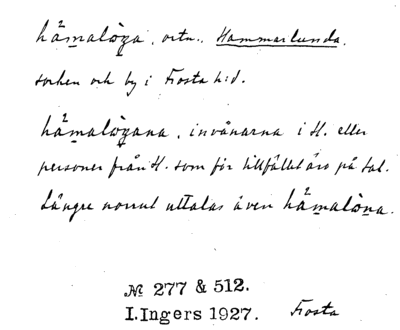 håmalöga, ortn. Hammarlunda,
socken och by i Frosta h:d.
håmalögana, invånarna i H. eller
personer från H. som för tillfället äro på tal.
Längre norrut uttalas även håmalöna.
№ 277 & 512.
I. Ingers 1927. Frosta